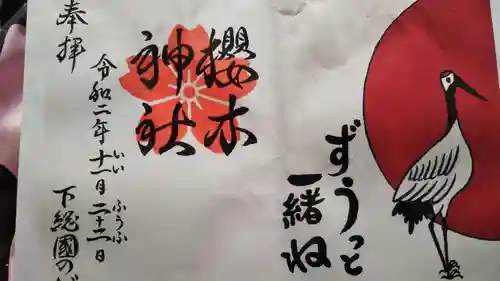 ずうっと
一緒ね
櫻木
神社
奉拝
令和二年十一月二十二日
いい
ふうふ
下総國のだ